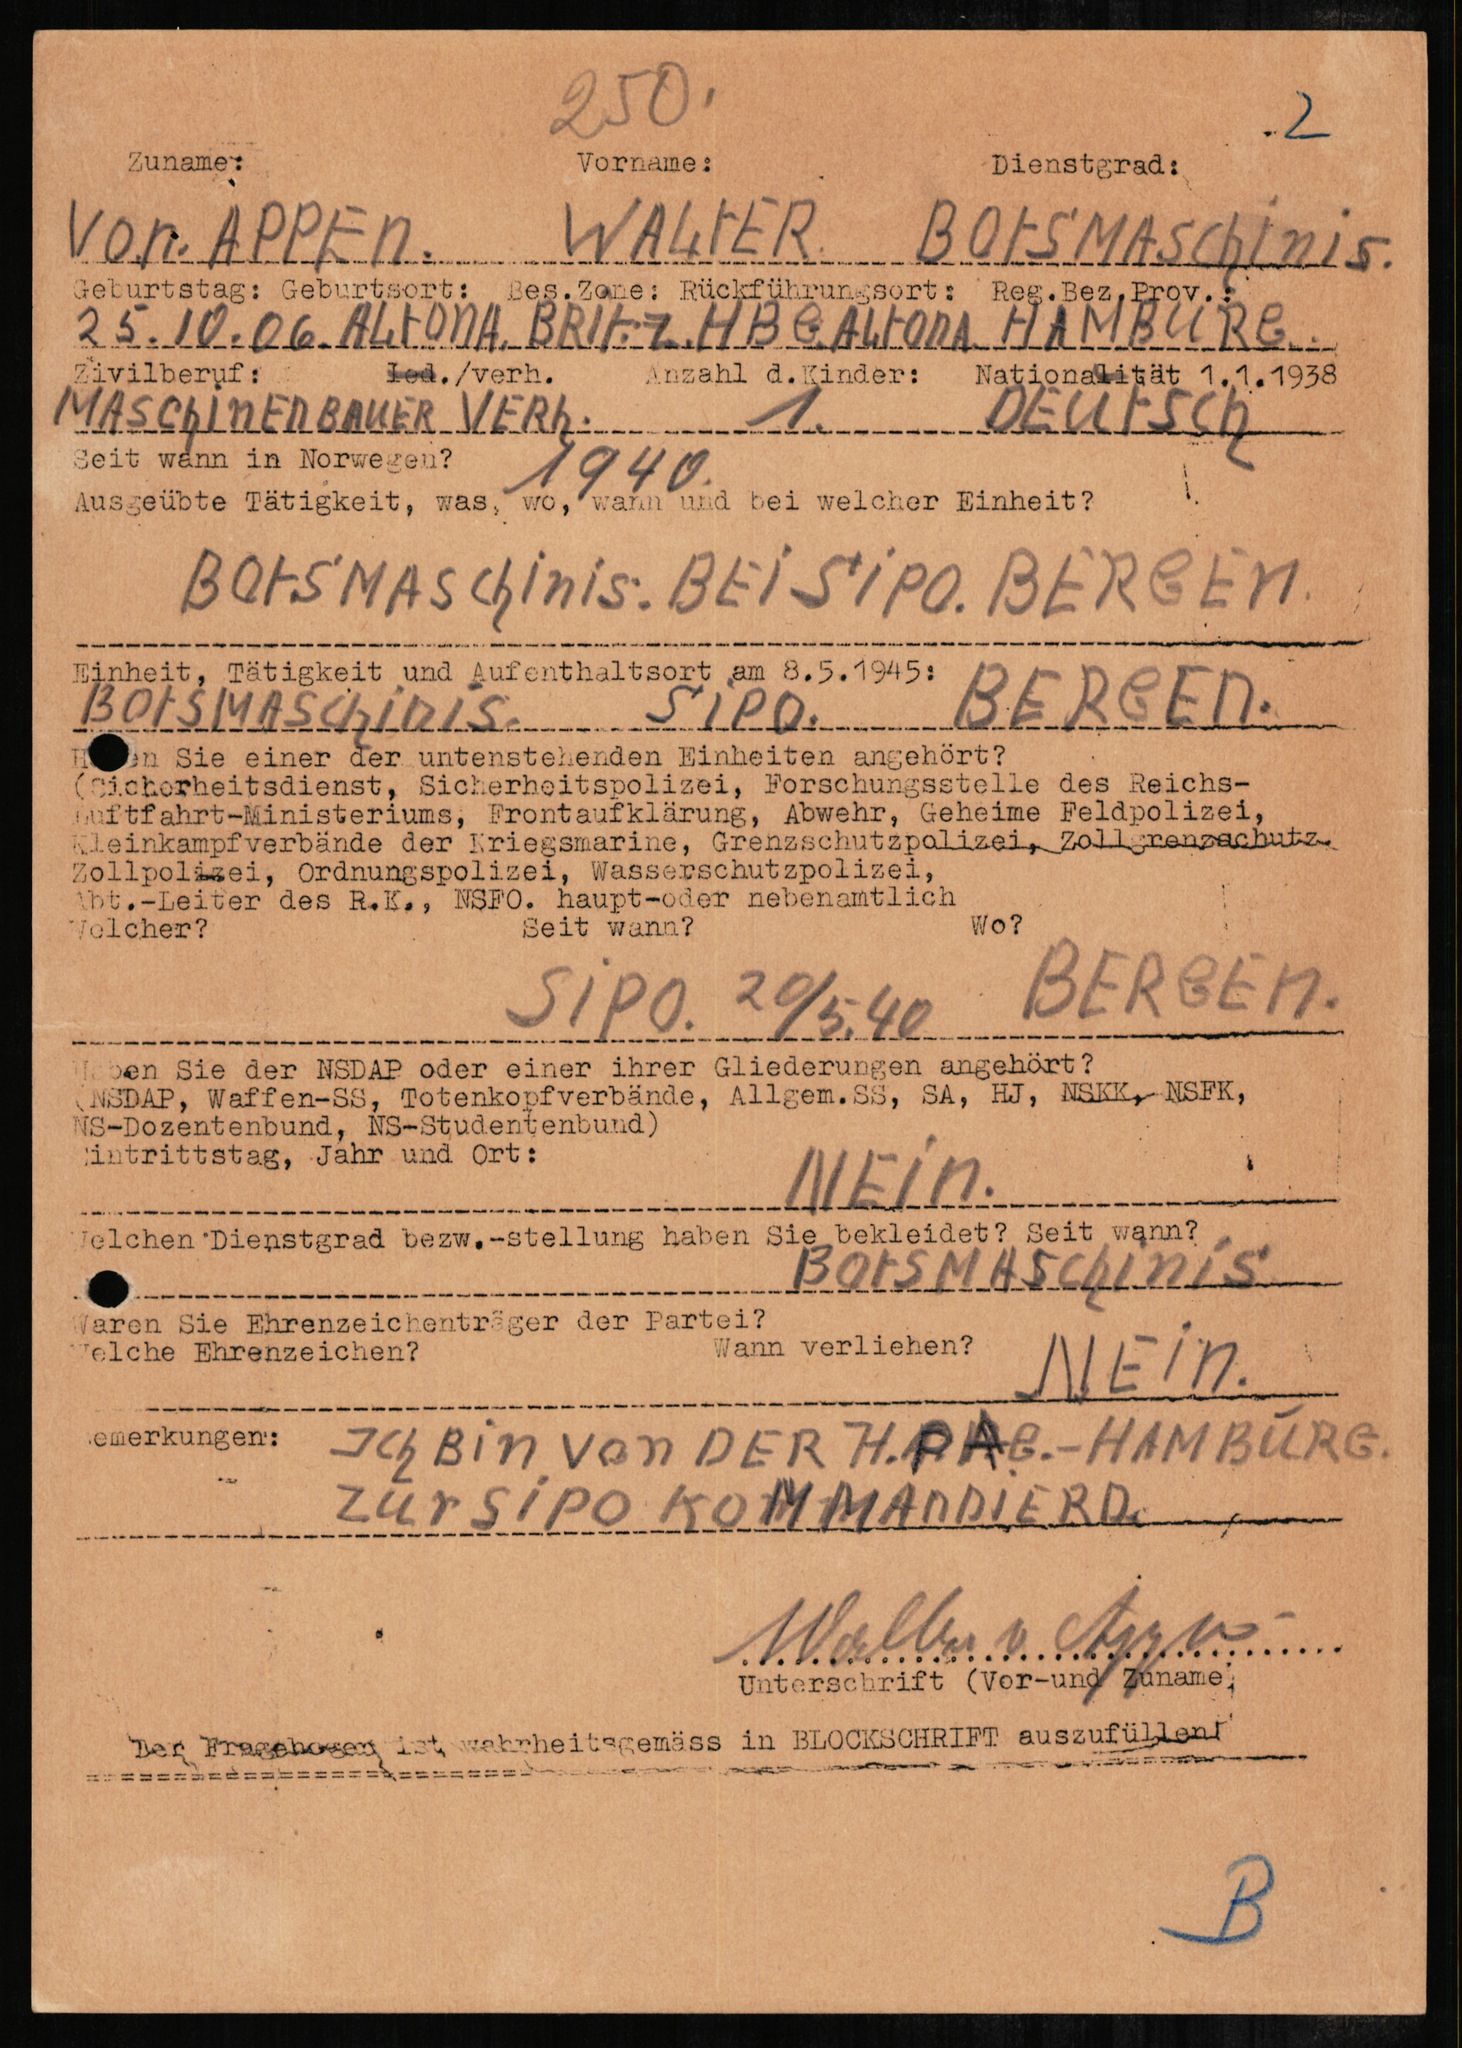 250.
2
Zuname: Vorname: Dienstgrad:
Von. APPEn. WALtER. BOtSMASchinis.
Geburtstag: Geburtsort: Bes.Zone: Rückführungsort: Reg.Bez.Prov.:
25.10.06. ALtONA. BRIt.Z. HBG ALtONA HAMBURG.
Zivilberuf: led./verh. Anzahl d.Kinder: Nationalität 1.1.1938
MASchinENBAUER VERh. 1. DEUtSch
Seit wann in Norwegen? 1940.
Ausgeübte Tätigkeit, was, wo, wann und bei welcher Einheit?
BOtSMASchinis. BEi SiPO. BERGEn.
Einheit, Tätigkeit und Aufenthaltsort am 8.5.1945:
BOtSMASchinis. SiPO. BERGEn.
Haben Sie einer der untenstehenden Einheiten angehört?
(Sicherheitsdienst, Sicherheitspolizei, Forschungsstelle des Reichs-
Luftfahrt-Ministeriums, Frontaufklärung, Abwehr, Geheime Feldpolizei,
Kleinkampfverbände der Kriegsmarine, Grenzschutzpolizei, Zollgrenzschutz.
Zollpolizei, Ordnungspolizei, Wasserschutzpolizei,
Abt.-Leiter des R.K., NSFO. haupt-oder nebenamtlich
Welcher? Seit wann? Wo?
SiPO. 20/5.40 BERGEn.
Haben Sie der NSDAP oder einer ihrer Gliederungen angehört?
(NSDAP, Waffen-SS, Totenkopfverbände, Allgem.SS, SA, HJ, NSKK, NSFK,
NS-Dozentenbund, NS-Studentenbund)
Eintrittstag, Jahr und Ort:
NEin.
Welchen Dienstgrad bezw.-stellung haben Sie bekleidet? Seit wann?
BOtSMASchinis
Waren Sie Ehrenzeichenträger der Partei?
Welche Ehrenzeichen? Wann verliehen?
NEin.
Bemerkungen: Ich Bin Von DER H.APAG.-HAMBURG.
ZUr SiPO KOMMANDIERD.
Walter v Appen
Unterschrift (Vor-und Zuname)
Der Fragebogen ist wahrheitsgemäss in BLOCKSCHRIFT auszufüllen!
B